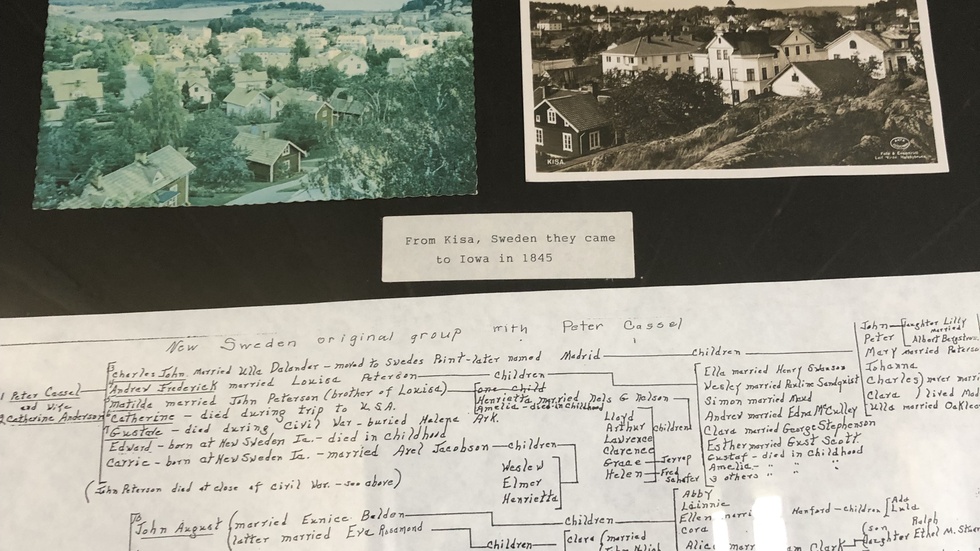 KISA
From Kisa, Sweden they came
to Iowa in 1845
New Sweden original group with Peter Cassel
1 Peter Cassel
and wife
2 Catherine Anderson
3 Charles John married Ulla Dalander - moved to Swedes Point - later named Madrid — Children
4 Andrew Frederick married Louisa Peterson — Children
5 Matilde married John Peterson (brother of Louisa) one child
6 Catherine - died during trip to U.S.A.
7 Gustave - died during Civil War - buried Helena Ark.
Edward - born at New Sweden Ia. - died in childhood
Carrie - born at New Sweden Ia. - married Axel Jacobson — children
(John Peterson died at close of Civil War - see above)
Henrietta married Nels G Nelson
Amelia - died in childhood
Lloyd
Arthur
Lawrence
Clarence
Grace — Jerrop
Helen — Fred
Shafer
children
Weslew
Elmer
Henrietta
Ella married Henry Swanson
Wesley married Axline Sandquist
Simon married Maud
Andrew married Edna McCulley
Clara married George Stephenson
Esther married Gust Scott
Gustaf - died in childhood
Amelia - " " "
3 others " " "
John — daughter Lilly
married
Peter Albert Bergstrom
Mary married Peterson
Johanna
Charles) never marri
Clara ) lived Mad
Ulla married Oaklea
John August (married Eunice Beldon — Children
latter married Eva Rosamond — Children
Abby
Lainnie
Ellen marri Hanford - children
Ada
Lula
Cora
Alice marri m Clark
(son Ralph
daughter Ethel M. Stua
Clara (married